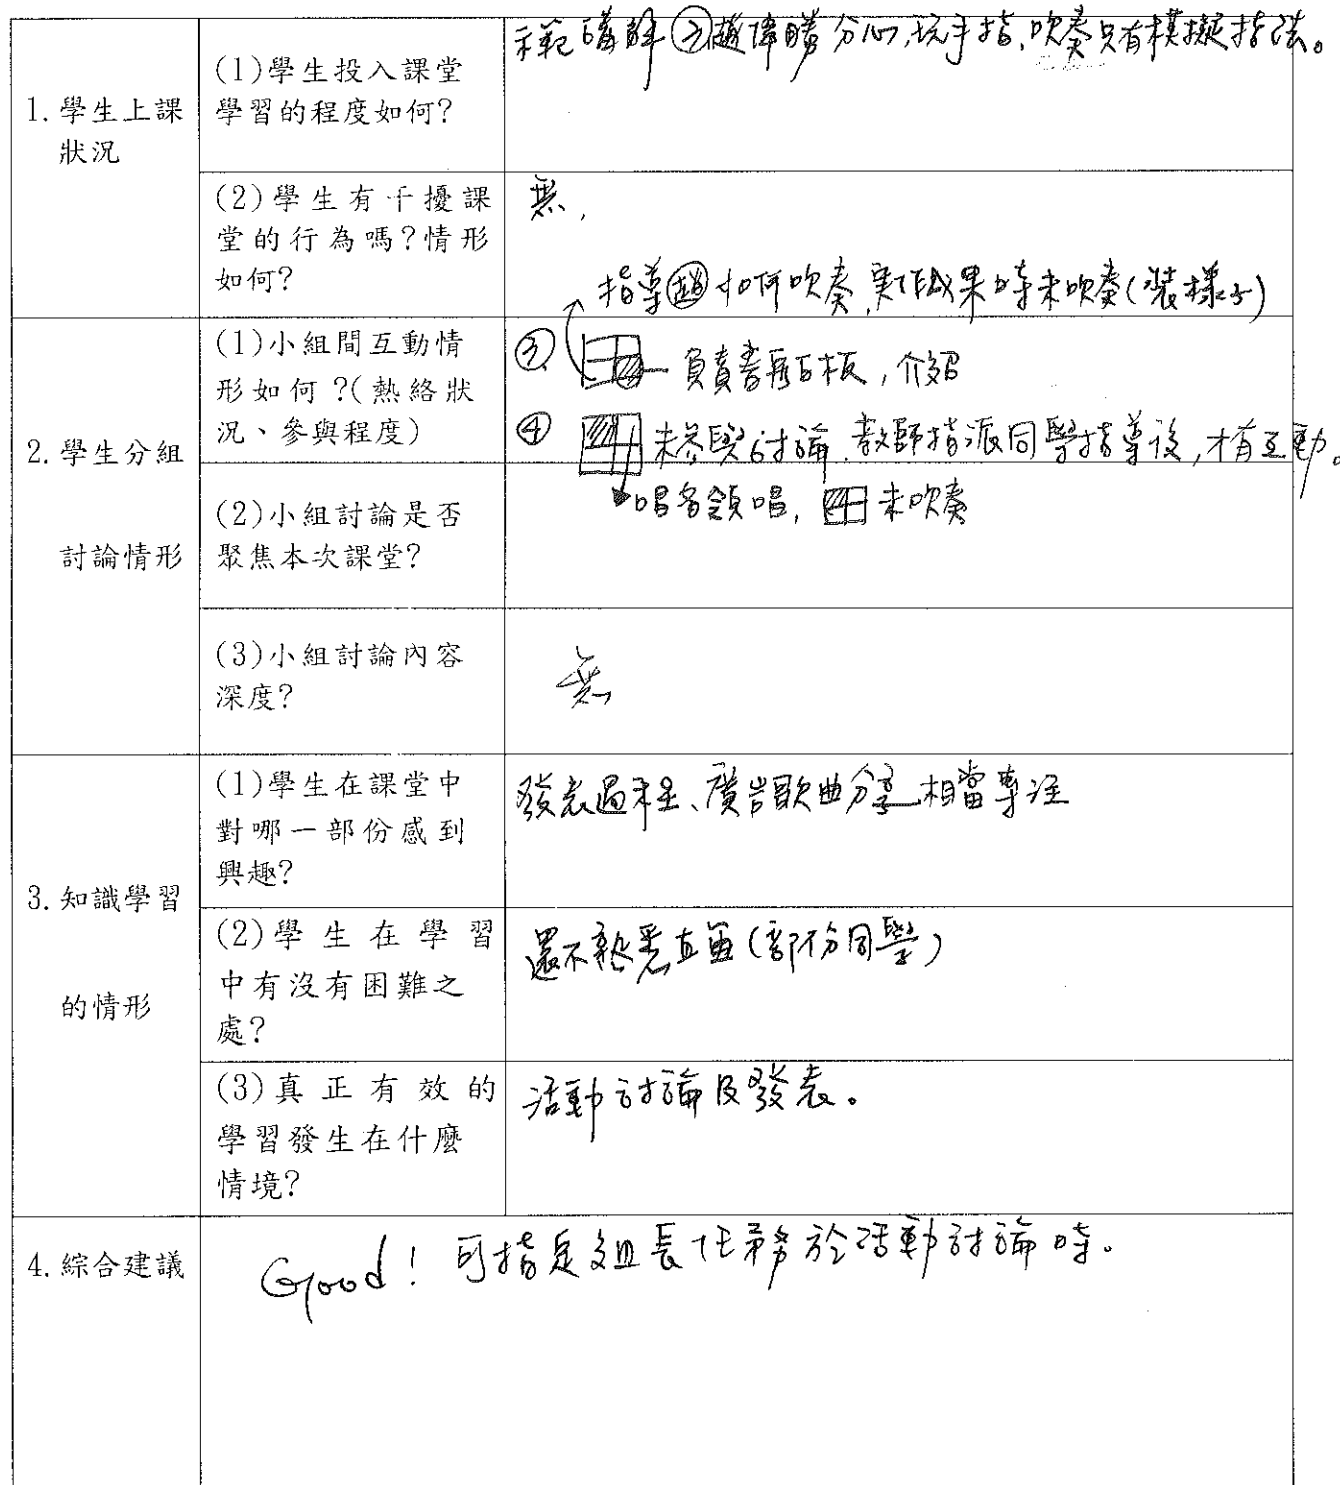 1.學生上課
狀況
(1)學生投入課堂
學習的程度如何?
示範講解③趙偉勝分心,玩手指,吹奏只有模擬指法。
(2)學生有干擾課
堂的行為嗎?情形
如何?
無,
指導趙如何吹奏,實作成果時未吹奏(裝樣子)
2.學生分組
討論情形
(1)小組間互動情
形如何?(熱絡狀
況、參與程度)
③ 負責書寫白板,介紹
④ 未參與討論,教師指派同學指導後,才有互動。
(2)小組討論是否
聚焦本次課堂?
唱名領唱, 未吹奏
(3)小組討論內容
深度?
無
3.知識學習
的情形
(1)學生在課堂中
對哪一部份感到
興趣?
發表過程、廣告歌曲分享相當專注
(2)學生在學習
中有沒有困難之
處?
還不熟悉直笛(部份同學)
(3)真正有效的
學習發生在什麼
情境?
活動討論及發表。
4.綜合建議
Good! 可指定組長任務於活動討論時。